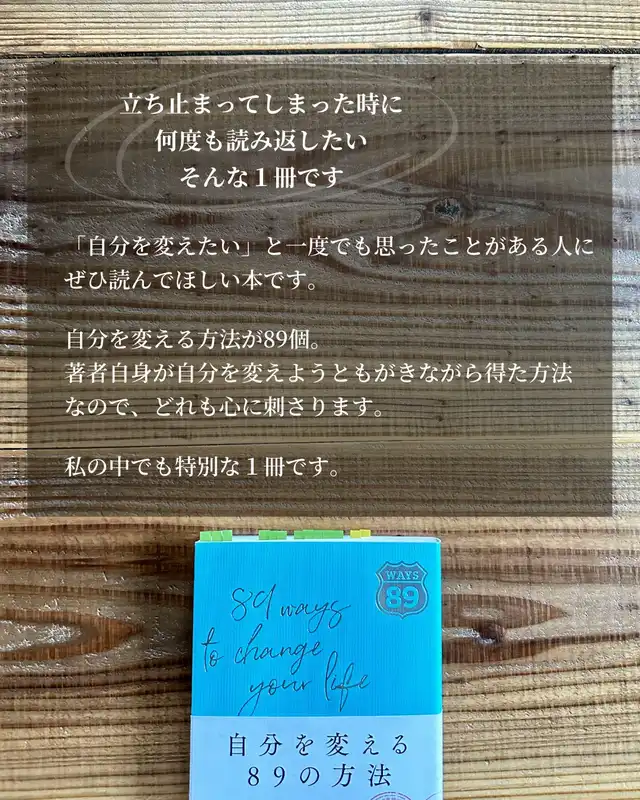 立ち止まってしまった時に
何度も読み返したい
そんな１冊です
「自分を変えたい」と一度でも思ったことがある人に
ぜひ読んでほしい本です。
自分を変える方法が89個。
著者自身が自分を変えようともがきながら得た方法
なので、どれも心に刺さります。
私の中でも特別な１冊です。
WAYS
89
89 ways
to change
your life
自分を変える
89の方法